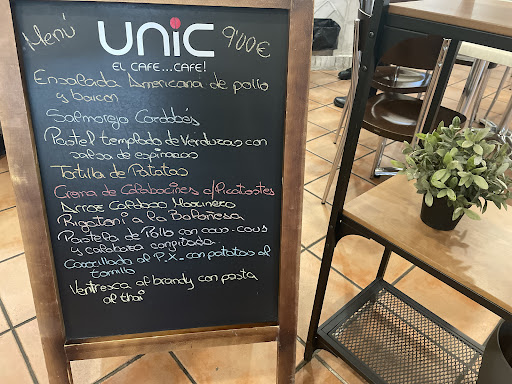 Menú
UNiC
900€
EL CAFE...CAFE!
Ensalada Americana de pollo
y baicon
Salmorejo Cordobés
Pastel templado de Verduras con
salsa de espinacas
Tortilla de Patatas
Crema de Calabacines c/Picatostes
Arroz Caldoso Marinero
Rigatoni a la Boloñesa
Pastela de Pollo con cous-cous
y calabaza confitada
Carrillada al P.X. con patatas al
tomillo
Ventresca al brandy con pasta
al thai